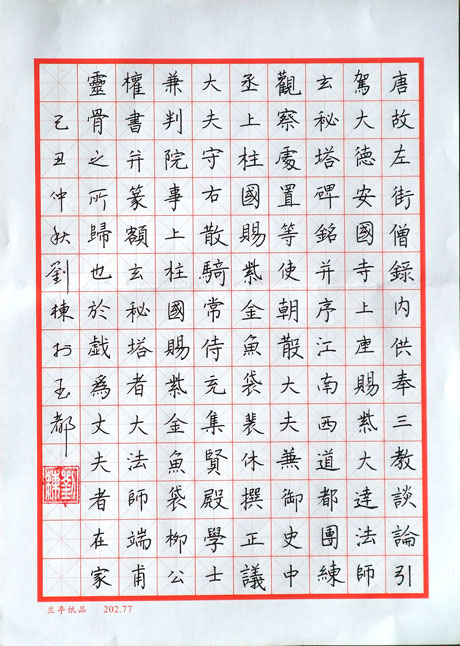 唐故左街僧錄内供奉三教談論引
駕大德安國寺上座賜紫大達法師
玄秘塔碑銘并序江南西道都團練
觀察處置等使朝散大夫兼御史中
丞上柱國賜紫金魚袋裴休撰正議
大夫守右散騎常侍充集賢殿學士
兼判院事上柱國賜紫金魚袋柳公
權書并篆額玄秘塔者大法師端甫
靈骨之所歸也於戲爲丈夫者在家
己丑仲秋劉棟於玉都
劉棟
兰亭纸品 202.77